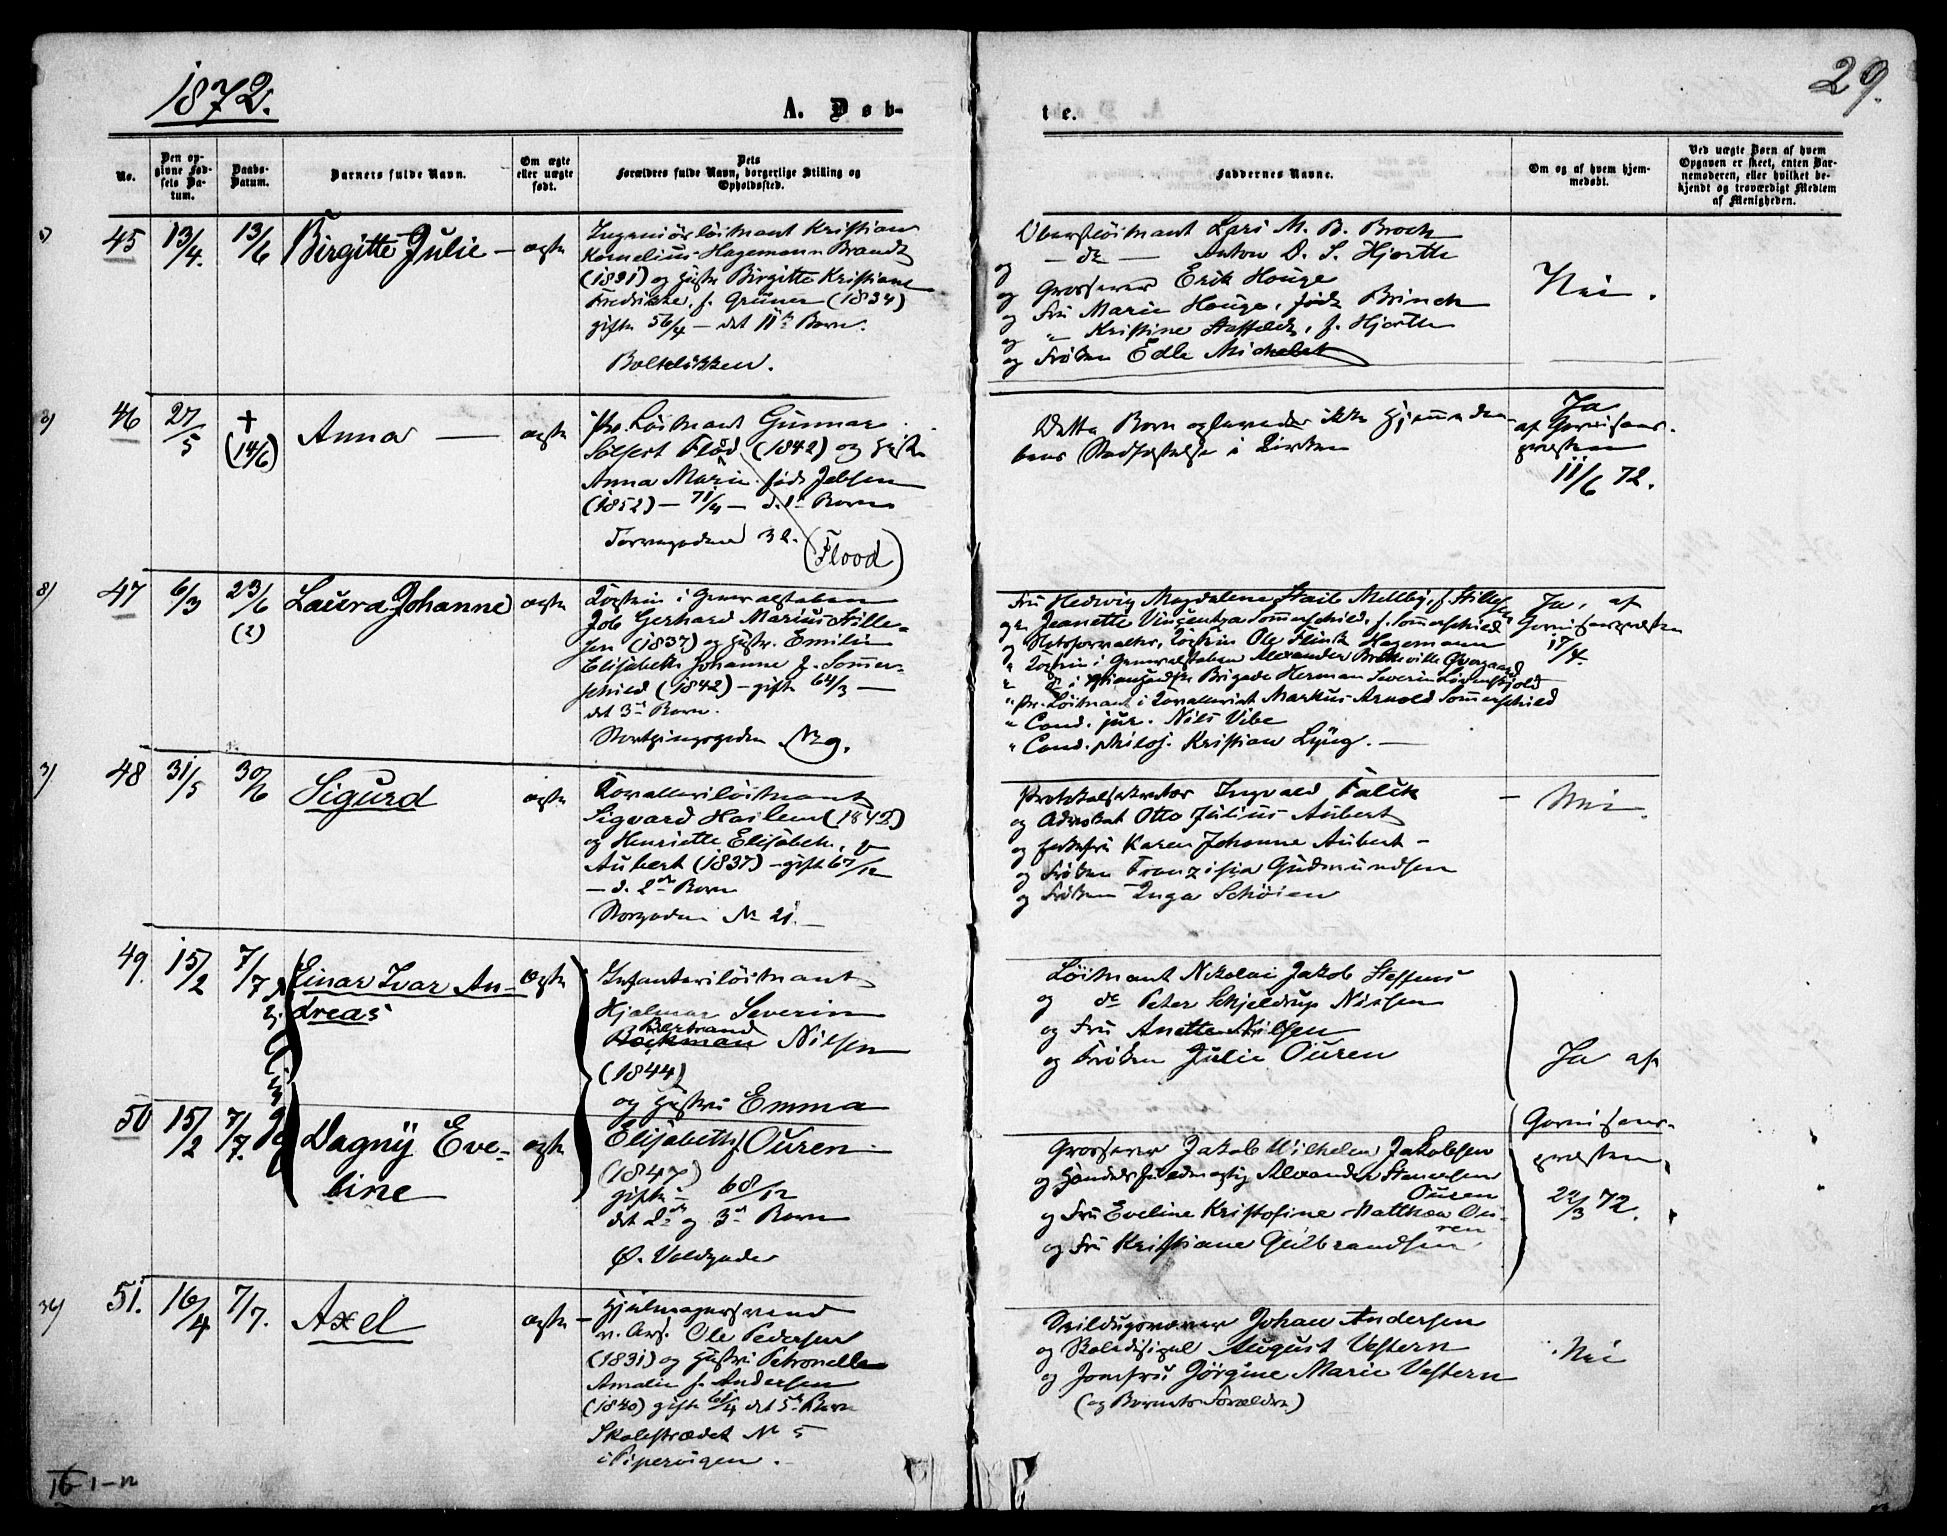 1872.
29.
A. Døb-
te.
No.
Den op-
givne Fød-
sels Da-
tum.
Daabs-
Datum.
Barnets fulde Navn.
Om ægte
eller uægte
født.
Dets
Forældres fulde Navn, borgerlige Stilling og
Opholdssted.
Faddernes Navne.
Om og af hvem hjem-
medøbt.
Ved uægte Børn af hvem
Opgaven er skeet, enten Bar-
nemoderen, eller hvilket be-
kjendt og troværdigt Medlem
af Menigheden.
45 13/4. 13/6 Birgitte Julie — ægte
Ingeniörlöitnant Kristian
Kornelius Hagemann Brandt
(1831) og Hustr Birgitte Kristiane
Fredrikke, f. Grüner (1834)
gifte 56/4 — det 11te Barn.
Bolteløkken.
Oberstlöitnant Lars M. B. Broch
— do — Anton D. S. Hjorth
og Grosserer Erik Houge
og Fru Marie Houge, född Brinch
og " Kristine Staffeldt, f. Hjorth
og Frøken Edle Michelet
Nei.
46 27/5 + (14/6) Anna — ægte
pr. Löitnant Gunnar
Sölfert Flod (1842) og Hustr
Anna Marie född Jebsen
(1852) — 71/4 — d. 1te Barn
Torvegaden 32. (Flood)
Dette Barn oplevede ikke Hjemmedaa-
bens Stadfæstelse i Kirken
Ja
af Garnisons-
præsten
11/6 72.
8) 47 6/3 23/6 (2) Laura Johanne ægte
Kaptein i Generalstaben
Job Gerhard Marius Hille-
sen (1837) og Hustr. Emilie
Elisabeth Johanne f. Sommer-
schield (1842) — gifte 64/3 —
det 3de Barn.
Stortingsgaden No 9.
Fru Hedvig Magdalene Mellbÿ, f.
og Jeanette Sommerschield, f. Sommerschield
og Slotsforvalter, Kaptein Ole Flink Hagemann
" Kaptein i Generalstaben Alexander
" Brigade Herman Severin Lövenskjold
" pr. Löitnant i Kavalleriet Markus Arnold Sommerschield
" Cand. jur. Nils Vibe
" Cand. philos. Kristian Lÿng. —
Ja, af
Garnisonspræsten
17/4.
3) 48 31/5 30/6 Sigurd ægte
Kavallerilöitnant
Sigvard (1842)
og Henriette Elisabeth, f.
Aubert (1837) — gift 67/12
— d. 2de Barn
Storgaden No 21. —
Protokolsekretær Ingvald Falck
og Advokat Otto Julius Aubert
og Karen Johanne Aubert —
og Frøken Franzisca Gudmundsen
og Frøken Inga Schöien
— Nei.
49. 15/2 7/7 Einar Ivar An-
dreas ægte
Infanterilöitnant
Hjalmar Severin
Nilsen
(1844)
og Hustru Emma
Elisabeth f. Ouren —
(1847)
gifte — 68/12
det 2de og 3de Barn
Ø. Voldgade
Löitnant Nikolai Jakob Steffens
og do Peter Schjelderup Nissen
og Fru Anette Nilsen
og Frøken Julie Ouren
Ja af
Garnisons-
præsten
22/3 72.
50 15/2 7/7. Tvillinger Dagnÿ Eve-
line ægte
Grosserer Jakob Wilhelm Jakobsen
og Handelsfuldmægtig Alexander
Ouren
og Fru Eveline Kristofine Matthea Ou-
ren
og Fru Kristiane Gulbrandsen
51. 16/4 7/7. Axel ægte —
Hjulmagersvend
v. Ars. Ole Pedersen
(1831) og Hustru Petronelle
Amalie f. Andersen
(1840) gifte 61/4 det 5te Barn
Skolestrædet No 5
i Pipervigen.
Seildugsvæver Johan Andersen
og Skoledisipel August Vestern
og Jomfru Jörgine Marie Vestern
(og Barnets Forældre)
Nei
16 1-12